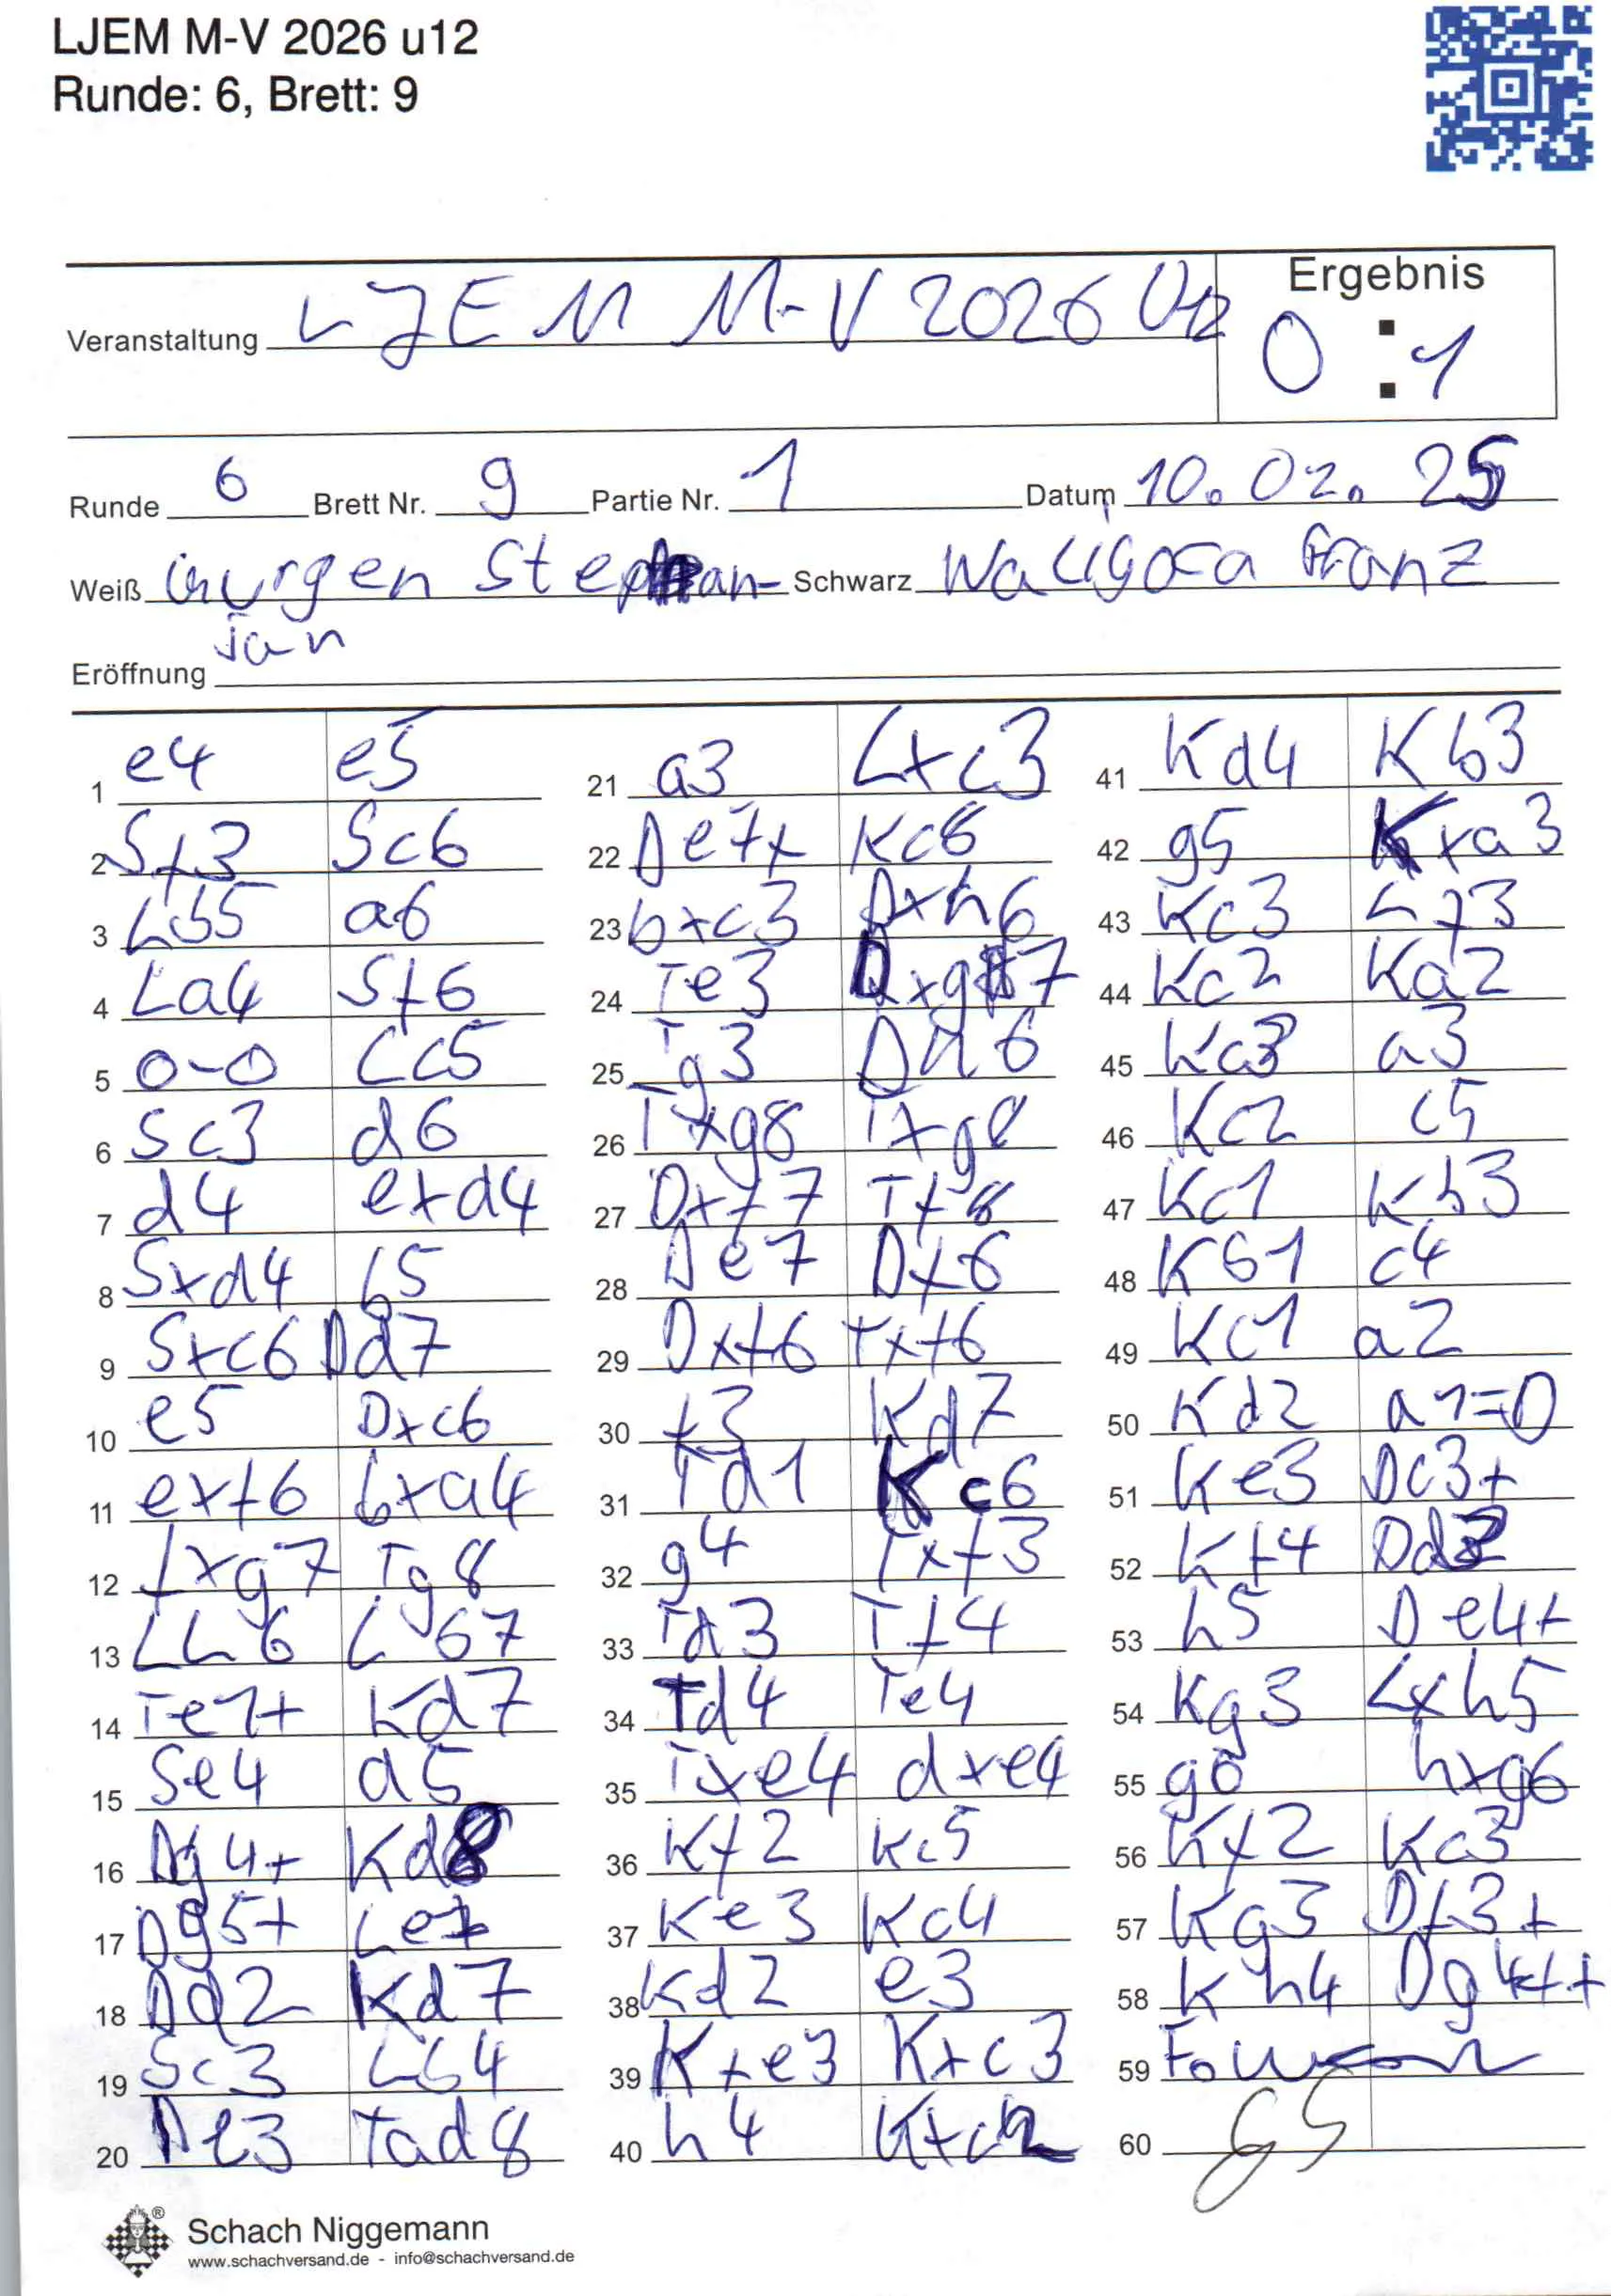 LJEM M-V 2026 u12
Runde: 6, Brett: 9
Ergebnis
Veranstaltung LJEM M-V 2026 U12
0 : 1
Runde 6 Brett Nr. 9 Partie Nr. 1 Datum 10. 02. 25
Weiß Stephan- Schwarz Waligora Franz
jan
Eröffnung
1 e4 e5
2 Sf3 Sc6
3 Lb5 a6
4 La4 Sf6
5 0-0 Lc5
6 Sc3 d6
7 d4 exd4
8 Sxd4 b5
9 Sxc6 Dd7
10 e5 Dxc6
11 exf6 bxa4
12 fxg7 Tg8
13 Lh6 Lb7
14 Te1+ Kd7
15 Se4 d5
16 Dg4+ Kd8
17 Dg5+ Le7
18 Dd2 Kd7
19 Sc3 Lb4
20 De3 Tad8
21 a3 Lxc3
22 De7+ Kc8
23 bxc3 Dxh6
24 Te3 Dxg7
25 Tg3 Dh6
26 Txg8 Txg8
27 Dxf7 Tf8
28 De7 Df6
29 Dxf6 Txf6
30 f3 Kd7
31 Td1 Kc6
32 g4 Txf3
33 Td3 Tf4
34 Td4 Te4
35 Txe4 dxe4
36 Kf2 Kc5
37 Ke3 Kc4
38 Kd2 e3
39 Kxe3 Kxc3
40 h4 Kxc2
41 Kd4 Kb3
42 g5 Kxa3
43 Kc3 Lf3
44 Kc2 Ka2
45 Kc3 a3
46 Kc2 c5
47 Kc1 Kb3
48 Kb1 c4
49 Kc1 a2
50 Kd2 a1=D
51 Ke3 Dc3+
52 Kf4 Dd3
53 h5 De4+
54 Kg3 Lxh5
55 g6 hxg6
56 Kf2 Kc3
57 Kg3 Df3+
58 Kh4 Dg4++
59
60
Schach Niggemann
www.schachversand.de - info@schachversand.de